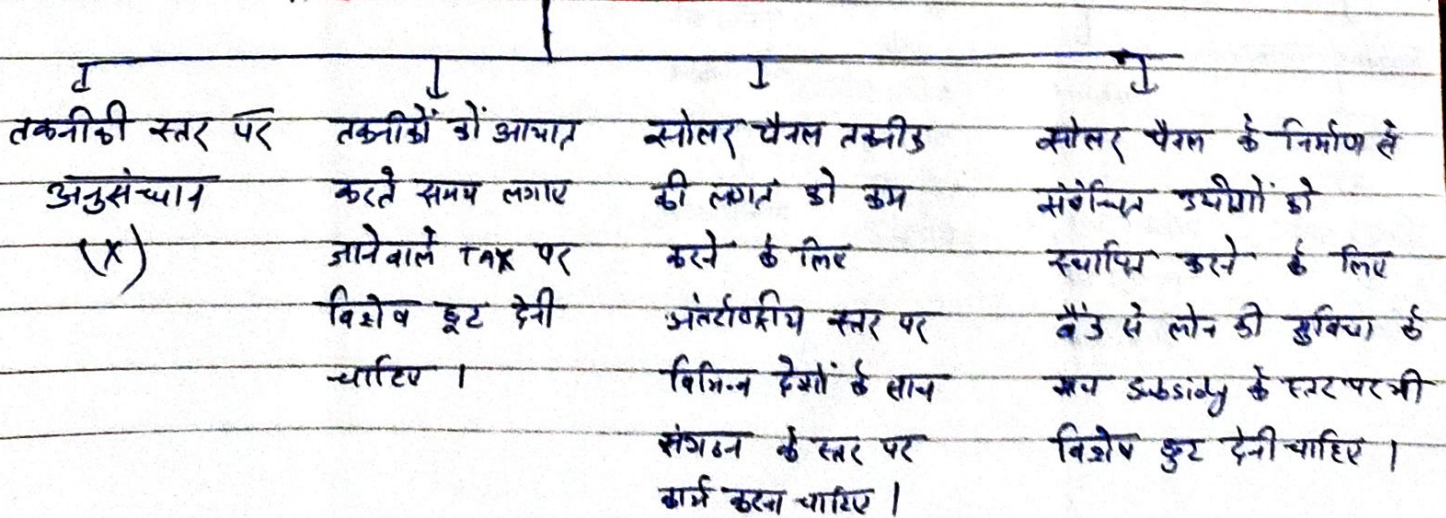 तकनीकी स्तर पर
अनुसंधान
(X)
तकनीकों को आयात
करते समय लगाए
जानेवाले TAX पर
विशेष छूट देनी
चाहिए ।
सोलर पैनल तकनीक
की लागत को कम
करने के लिए
अंतर्राष्ट्रीय स्तर पर
विभिन्न देशों के साथ
संगठन के स्तर पर
कार्य करना चाहिए ।
सोलर पैनल के निर्माण से
संबंधित उद्योगों को
स्थापित करने के लिए
बैंक से लोन की सुविधा के
साथ Subsidy के स्तर पर भी
विशेष छूट देनी चाहिए ।